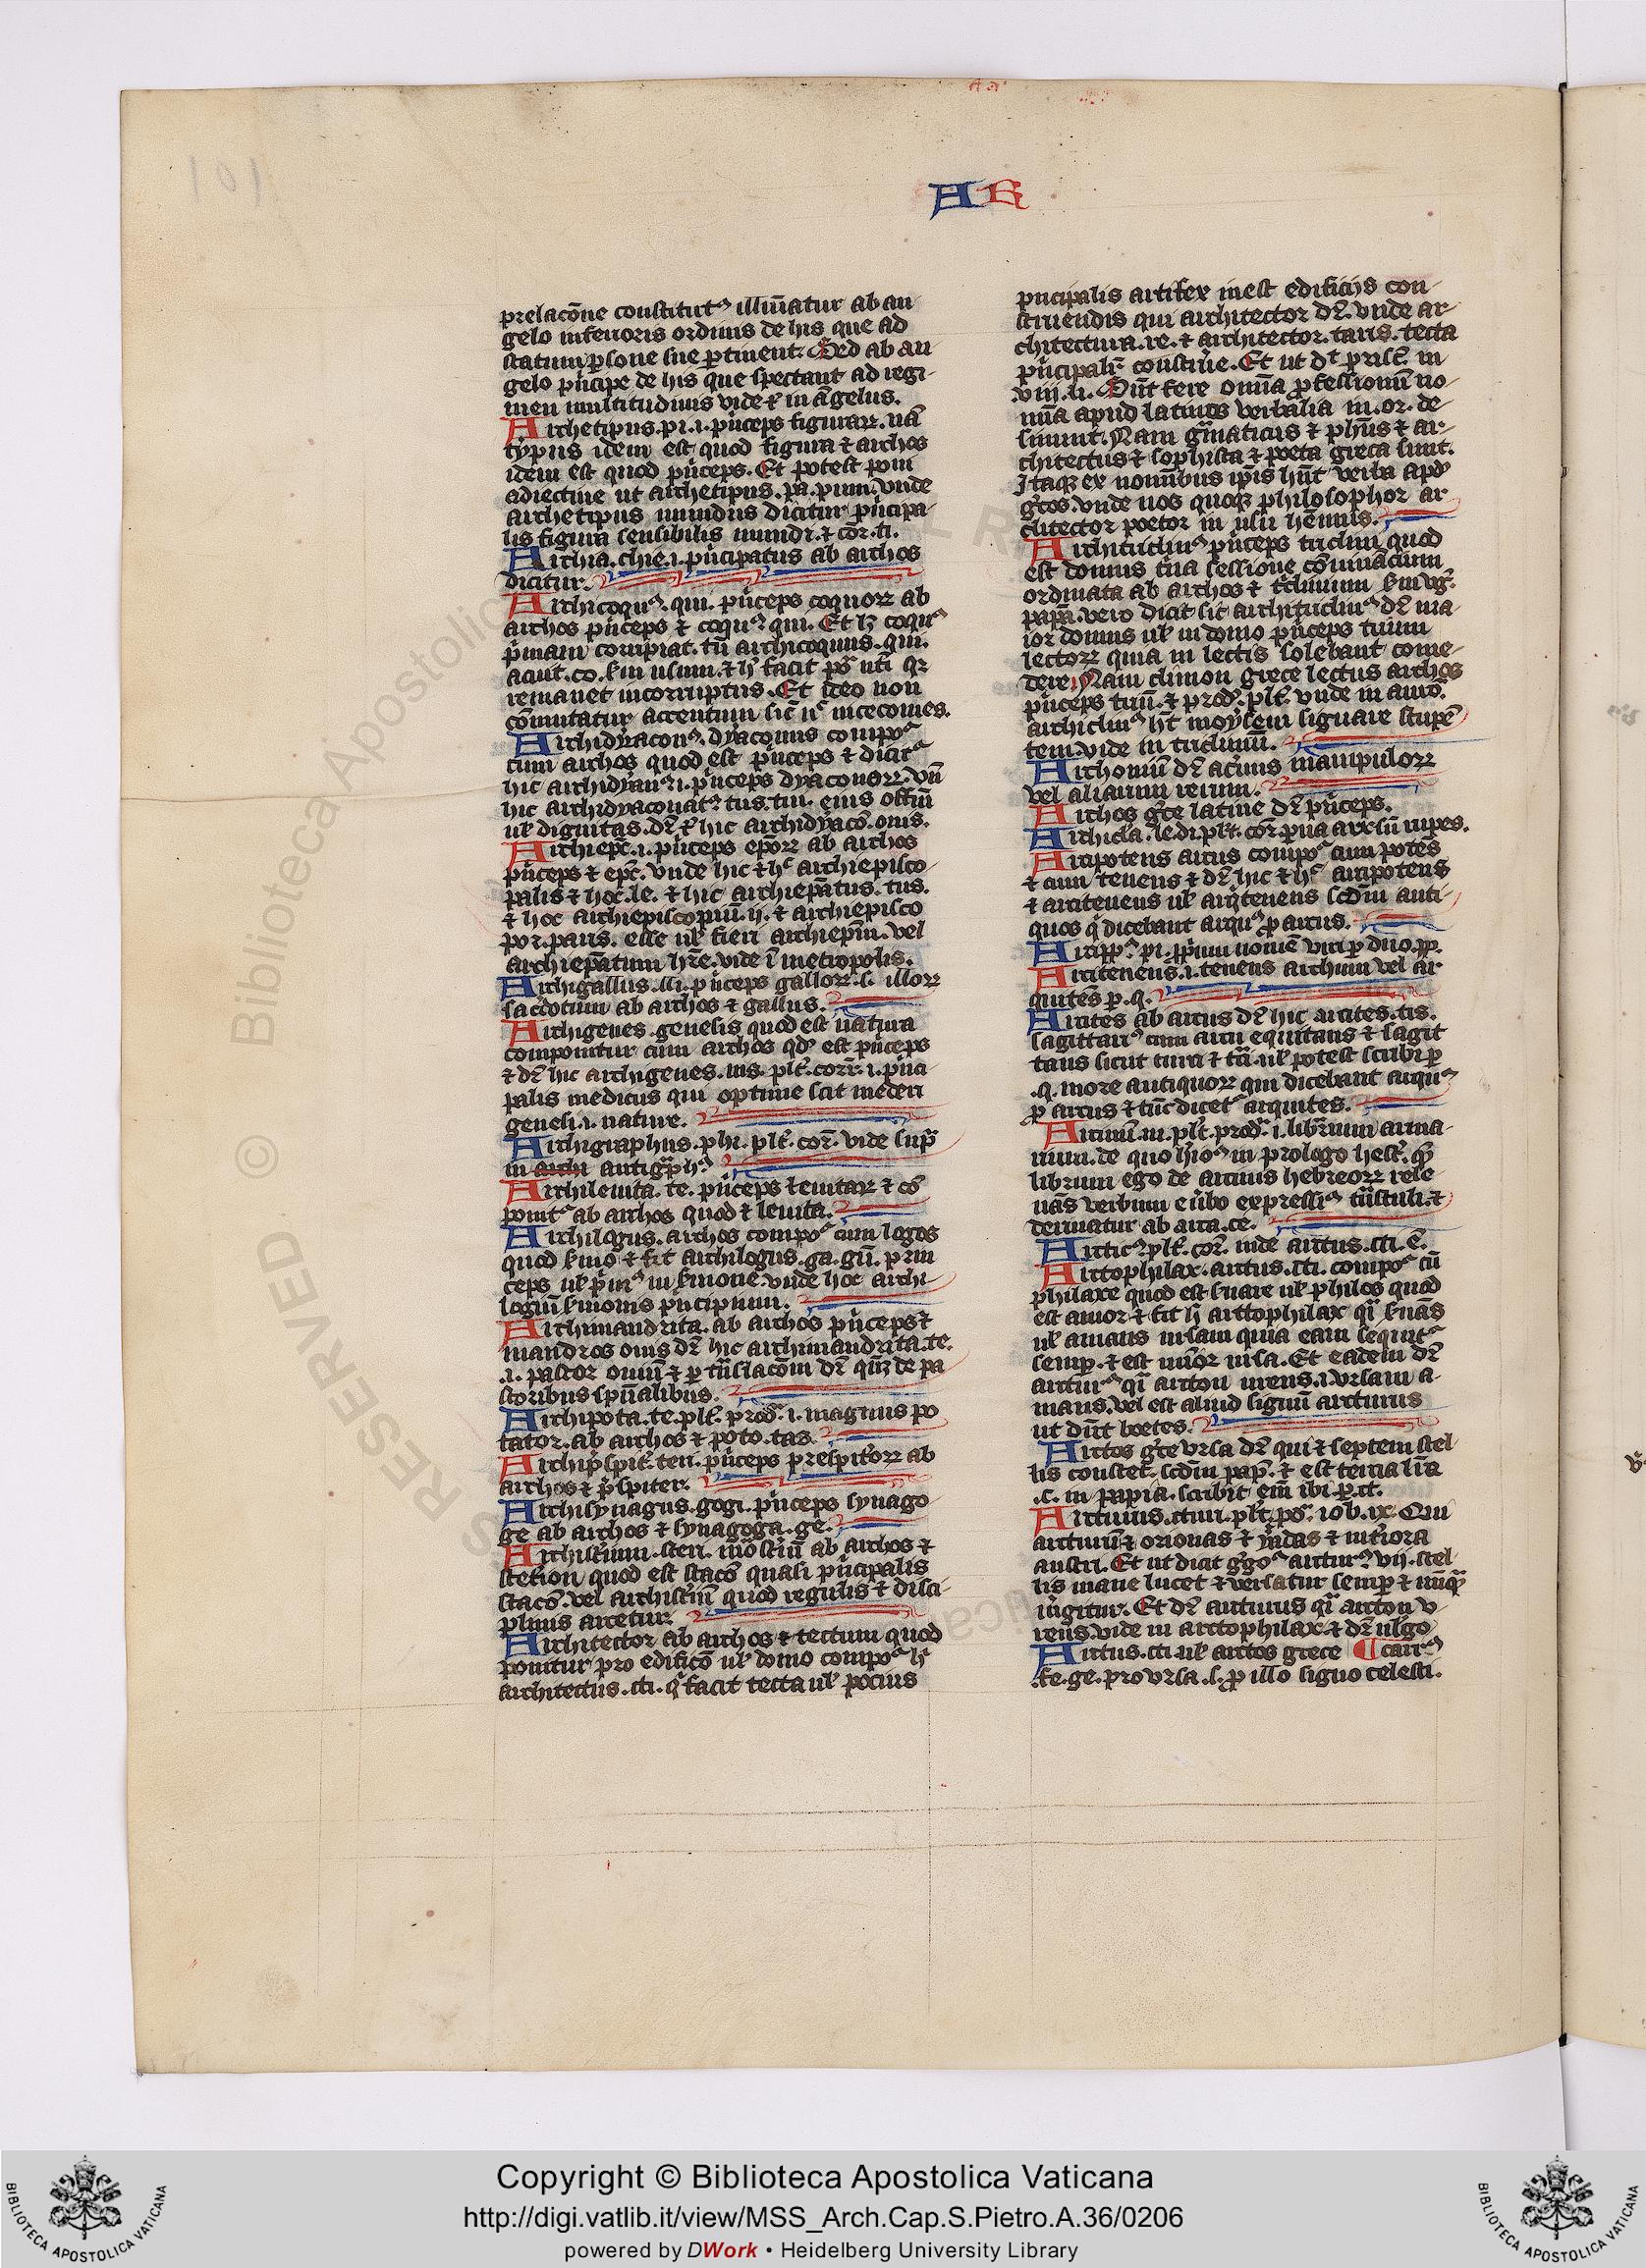 AR
prelacōne constitut⁹ illuīatur ab an
gelo inferioris ordinis de his que ad
statum ꝑsone sue ꝑtinent. Sed ab an
gelo pͥncipe de his que spectant ad regi-
men multitudinis vide ⁊ in āgelus.
Archetipus .pi .i. pͥnceps figuraꝝ. nā
typus idem est quod figura ⁊ archos
idem est quod pͥnceps. Et potest poni
adiectiue ut archetipus .pa .pum. vnde
archetipus mundus dicitur pͥncipa-
lis figura sensibilis mundi. ⁊ cōr. ti.
Archia .chie .i. pͥncipatus ab archos
dicitur.
Archicoqu⁹. qui. pͥnceps coquoꝝ ab
archos pͥnceps ⁊ coqu⁹ qui. Et lꝫ coqu⁹
pͥmam corripiat. tn̄ archicoquus. qui.
acuit .co. ẜm usum. ⁊ h̓ facit
remanet incorruptus. Et ideo non
cōmutatur accentum sic̄ nͨ nicecomes.
Archidyacon⁹. dyaconus compoᷤ
cum archos quod est pͥnceps ⁊ dicit᷑
hic archidyan⁹ .i. pͥnceps dyaconoꝝ. vn̄
hic archidyaconat⁹ tus. tui. eius offm̄
ul̓ dignitas. dr̄ ⁊ hic archidyacō. onis.
Archiepc̄ .i. pͥnceps ep̄oꝝ ab archos
pͥnceps ⁊ epc̄. vnde hic ⁊ hͨ archiepisco-
palis ⁊ hoc .le. ⁊ hic archiep̄atus .tus.
⁊ hoc archiepiscopiū .ij. ⁊ archiepisco
por .paris. esse ul̓ fieri archiep̄m. vel
archiep̄atum hr̄e. vide ī metropolis.
Archigallus .lli. pͥnceps galloꝝ .s. illoꝝ
sacdotum ab archos ⁊ gallus.
Archigenes .genesis quod est natura
componitur cum archos qd̓ est pͥnceps
⁊ dr̄ hic archigenes .nis. pl̓t. corr̄. i. pͥnci
palis medicus qui optime scit mederi
genesi .i. nature.
Archigraphus .phi. pl̓t. cor̄. vide supͣ
in archi antigͣph⁹
Archileuita .te. pͥnceps leuitaꝝ ⁊ cō
ponit᷑ ab archos quod ⁊ leuita.
Archilogus. archos compoᷤ cum logos
quod ẜmo ⁊ fit archilogus .ga .gū. prin
ceps ul̓ pͥm⁹ in ẜmone. vnde hoc archi-
logiū ẜmonis principium.
Archimandrita. ab archos pͥnceps ⁊
mandros ouis dr̄ hic archimandrita .te.
.i. pastor ouiū ⁊ ꝑ tn̄slacōm dr̄ qn̄qꝫ de pa
storibus spūalibus.
Archipota .te. pl̓t. prod̓. i. magnus po
tator. ab archos ⁊ poto .tas.
Archipͥsbit̓ .teri. pͥnceps presbit̓oꝝ ab
archos ⁊ pͥsbiter.
Archisynagus .gogi. pͥnceps synago
ge ab archos ⁊ synagoga .ge.
Archist̓ium .sterii. mōst̓iū ab archos ⁊
sterion quod est stacō quasi pͥncipalis
stacō. vel archist̓iū quod regulis ⁊ disci-
plinis arcetur
Architector ab archos ⁊ tectum quod
ponitur pro edificō ul̓ domo compoᷤ hͨ
architectus .cti. qͥ facit tecta ul̓ pocius
pncipalis artifex inest edificijs con-
struendis qui architector dr̄. vnde ar-
chitectura .re. ⁊ architector .taris. tecta
pͥncipalr̄ construe. Et ut dt̄ prisc̄. in
.viij. li. Sūt fere omīa ꝓfessionū no-
mīa apud latinos verbalia in .or. de-
sinunt. Nam gͣmaticus ⁊ phūs ⁊ ar-
chitectus ⁊ sophista ⁊ poeta greca sunt.
Itaqꝫ ex nomībus ip̄is hn̄t verba apd̓
gͨos. vnde nos quoqꝫ philosophor ar
chitector poetor in usu hēmus.
Architriclin⁹ pͥnceps triclini quod
est domus tͥna sessione cōminatum
ordinata ab archos ⁊ tͥclinium
papīa. vero dicit sic architriclin⁹ dr̄ ma-
ior domus ul̓ in domo pͥnceps trium
lectoꝝ quia in lectis solebant come-
dere. Nam clinon grece lectus archos
pͥnceps trīū. ⁊ prod̓. pl̓t. vnde in auro.
archiclin⁹ hc̄ moysem signare stupē
tem. vide in triclinū.
Archoniū dr̄ aceruus manipuloꝝ
vel aliarum rerum.
Archos gͨce latine dr̄ pͥnceps.
Archicla .le. di. pl̓t. cor̄. pua arx sū rupes.
Arcipotens arcus compoᷤ cum potēs
⁊ cum tenens ⁊ dr̄ hic ⁊ hͨ arcipotens
⁊ arcitenens ul̓ arqͥtenens scd̄m anti-
quos qͥ dicebant arqu⁹ ꝓ arcus.
Arcipp⁹ .pi. ꝓpͥum nomē viri ꝑ duo .pp.
Arcitenens .i. tenens archum vel ar
quitēs ꝑ .q.
Arcites ab arcus dr̄ hic arcites .tis.
sagittari⁹ cum arcu equitans ⁊ sagit
tans sicut turci ⁊ ul̓ potest scribi ꝑ
.q. more antiquoꝝ qui dicebant arqu⁹
ꝓ arcus ⁊ tūc dicet᷑ arquites.
Arciuū .ui. pl̓t. prod̓. i. librarium arma-
rium. de quo in prologo hest̓. qͥ
librum ego de arciuis hebreoꝝ rele
uās verbum e ūbo expressi⁹ tn̄stuli. ⁊
deriuatur ab arca .ce.
Arctic⁹. pl̓t. cor̄. inde arctus .cti. ē.
Arctophilax. arctus .cti. compoᷤ cū
philaxe quod est ẜuare ul̓ philos quod
est amor ⁊ fit h̓ arctophilax qͥ ẜuās
ul̓ amans ursam quia eam sequit᷑
semꝑ. ⁊ est minor ursa. Et eadem dr̄
arctur⁹ qͣ arcton urens .i. vrsam a-
mans. vel est aliud signū arcturus
ut dūt boetes.
Arctos gͨce vrsa dr̄ qui ⁊ septem stel
lis constet. scd̄m pap̄. ⁊ est tercia lr̄a
.c. in papia. scribit̓ em̄ ibi ꝑ .ct.
Arcturus .cturi. pl̓t. ꝓᷤ. iob .ix. Qui
arcturū ⁊ orionas ⁊ yadas ⁊ int̓iora
austri. Et ut dicit gͤgo⁹ arctur⁹ vij. stel
lis mane lucet ⁊ versatur semꝑ ⁊ nūqͣ
mͥgitur. Et dr̄ arcturus qͣ arcton v
rens. vide in arctophilax. ⁊ dr̄ ulgo
Arctus .cti. ul̓ arctos grece ¶ carr⁹
.te. ge. pro vrsa .s. ꝓ illo signo celesti.
101
© Biblioteca Apostolica
RESERVED
Copyright © Biblioteca Apostolica Vaticana
http://digi.vatlib.it/view/MSS_Arch.Cap.S.Pietro.A.36/0206
powered by DWork • Heidelberg University Library
BIBLIOTECA APOSTOLICA VATICANA
BIBLIOTECA APOSTOLICA VATICANA